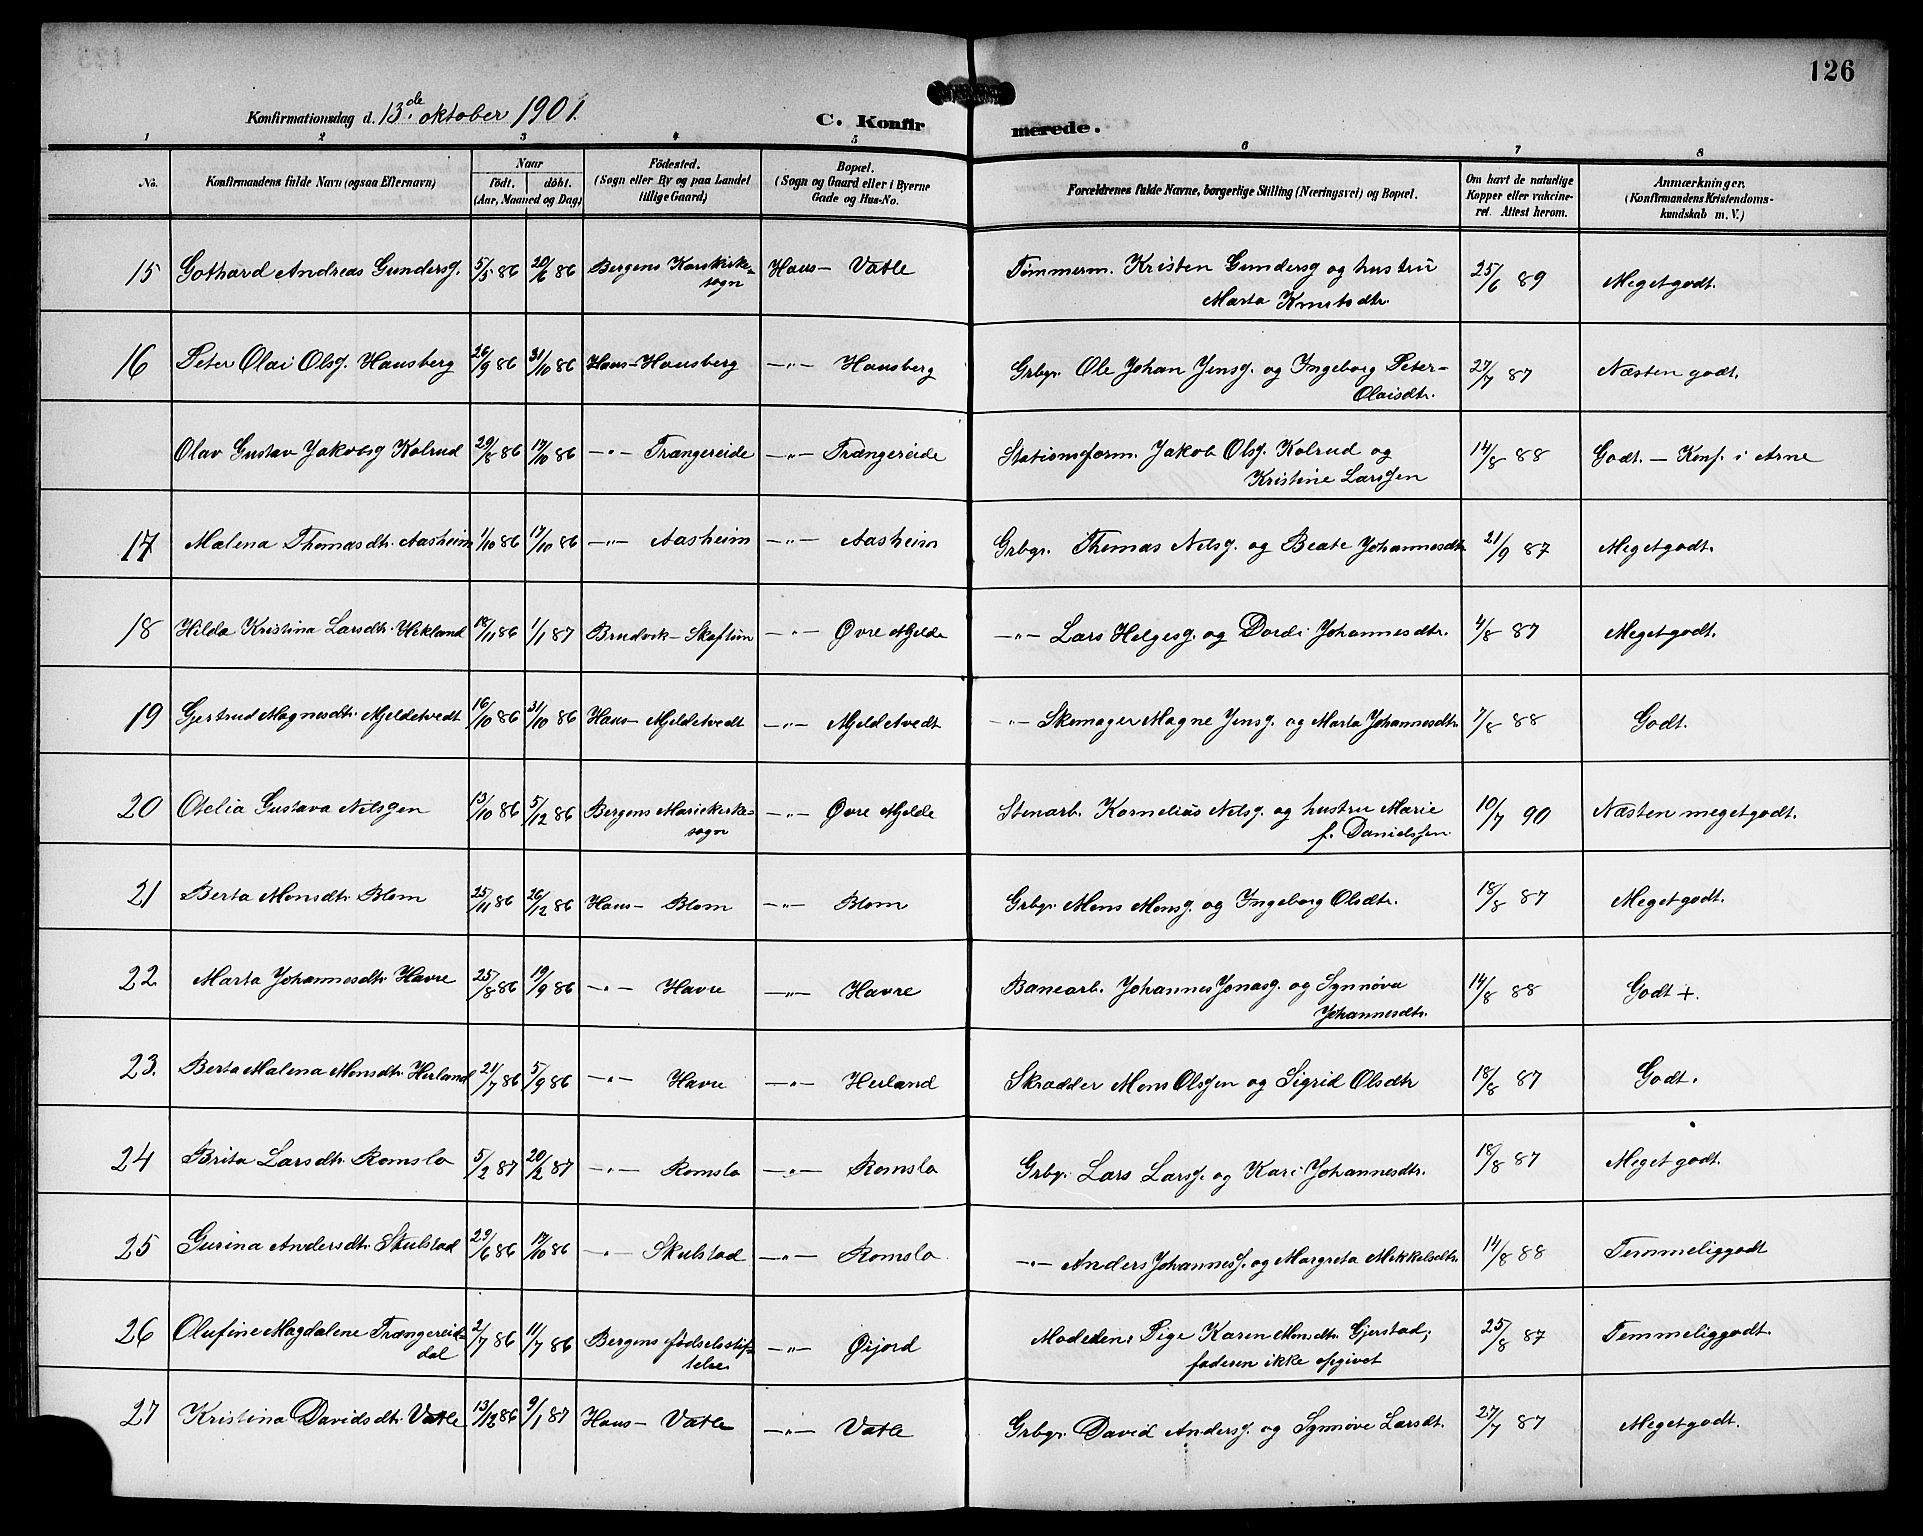 126
Konfirmationsdag d. 13de oktober 1901.
C. Konfirmerede.
1 2 3 4 5 6 7 8
No. Konfirmandens fulde Navn (ogsaa Efternavn) Naar født. døbt. (Aar, Maaned og Dag) Födested. (Sogn eller By og paa Landet tillige Gaard) Bopæl. (Sogn og Gaard eller i Byerne Gade og Hus-No. Forældrenes fulde Navne, borgerlige Stilling (Næringsvei) og Bopæl. Om havt de naturlige Kopper eller vakcineret. Attest herom. Anmærkninger. (Konfirmandens Kristendomskundskab m. V.)
15 Gothard Andreas Gundersg. 5/5 86 20/6 86 Bergens Korskirkesogn Haus - Vatle Tømmerm. Kristen Gundersg og hustru Marta Knutsdtr. 25/6 89 Megetgodt.
16 Peter Olai Olsg. Hausberg 26/9 86 31/10 86 Haus - Hausberg -"- Hausberg Grbgr. Ole Johan Jensg. og Ingeborg Peter-Olaisdtr. 27/7 87 Næsten godt.
Olav Gustav Jakobsg Kolrud 29/8 86 17/10 86 -"- Trængereide -"- Trængereide Stationsform. Jakob Olsg. Kolrud og Kristine Larssen 14/8 88 Godt. - Konf. i Arne
17 Malena Thomasdtr. Aasheim 1/10 86 17/10 86 -"- Aasheim -"- Aasheim Grbgr. Thomas Nelsg. og Beate Johannesdtr 21/9 87 Megetgodt.
18 Hilda Kristina Larsdtr. Hekland 18/11 86 1/1 87 Bruvik - Skaftun -"- Øvre Mjelde -"- Lars Helgesg. og Dordi Johannesdtr. 4/8 87 Megetgodt.
19 Gjertrud Magnesdtr. Mjeldetvedt 16/10 86 31/10 86 Haus - Mjeldetvedt -"- Mjeldetvedt -"- Skomager Magne Jensg. og Marta Johannesdtr. 7/8 88 Godt.
20 Otelia Gustava Nelsgen 13/10 86 5/12 86 Bergens Mariekirkesogn -"- Øvre Mjelde Stenarb. Kornelius Nelsg. og hustru Marie f. Danielssen 10/7 90 Næsten megetgodt.
21 Berta Monsdtr. Blom 25/11 86 26/12 86 Haus - Blom -"- Blom Grbgr. Mons Monsg. og Ingeborg Olsdtr. 18/8 87 Megetgodt.
22. Marta Johannesdtr. Havre 25/8 86 19/9 86 -"- Havre -"- Havre Banearb. Johannes Jonasg. og Synnøva Johannesdtr. 14/8 88 Godt +.
23. Berta Malena Monsdtr. Herland 21/7 86 5/9 86 -"- Havre -"- Herland Skrædder Mons Olssen og Sigrid Olsdtr 18/8 87 Godt.
24 Brita Larsdtr. Romslo 5/2 87 20/2 87 -"- Romslo -"- Romslo Grbgr. Lars Larsg. og Kari Johannesdtr. 18/8 87 Megetgodt.
25 Gurina Andersdtr. Skulstad 29/6 86 17/10 86 -"- Skulstad -"- Romslo -"- Anders Johannesg. og Margreta Mikkelsdtr. 14/8 88 Temmeliggodt
26 Olufine Magdalene Trængereiddal 2/7 86 11/7 86 Bergens fødselsstiftelse -"- Øijord Moderen: Pige Karen Monsdtr. Gjerstad; faderen ikke opgivet 25/8 87 Temmeliggodt.
27 Kristina Davidsdtr. Vatle 13/12 86 9/1 87 Haus - Vatle -"- Vatle Grbgr. David Andersg. og Synnøve Larsdt. 27/7 87 Megetgodt.